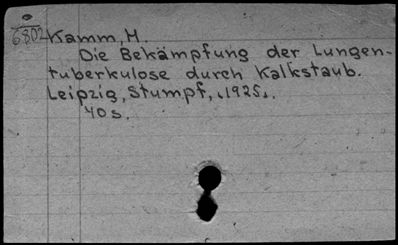 6802 Kamm, M.
Die Bekämpfung der Lungen-
tuberkulose durch Kalkstaub.
Leipzig, Stumpf, [1925].
40 s.